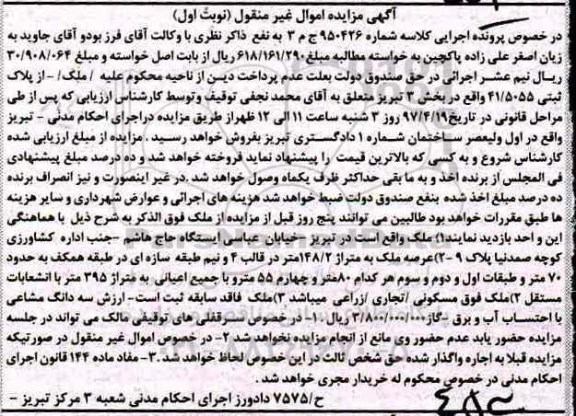 آگهی مزایده اموال غیر منقول (نوبت اول)
در خصوص پرونده اجرایی کلاسه شماره ۹۵۰۴۲۶ ج م ۳ به نفع ذاکر نظری با وکالت آقای فرز بودو آقای جاوید به
زیان اصغر علی زاده پاکچین به خواسته مطالبه مبلغ ۶۱۸/۱۶۱/۲۹۰ ریال از بابت اصل خواسته و مبلغ ۳۰/۹۰۸/۰۶۴
ریـال نیم عشـر اجرائی در حق صندوق دولت بعلت عدم پرداخت دیـن از ناحیه محکوم علیه / ملک/ - از پلاک
ثبتی ۴۱/۵۰۵۵ واقع در بخش ۳ تبریز متعلق به آقای محمد نجفی توقیف وتوسط کارشناس ارزیابی که پس از طی
مراحل قانونی در تاریخ ۹۷/۴/۱۹ روز ۳ شنبه ساعت ۱۱ الی ۱۲ ظهراز طریق مزایده دراجرای احکام مدنی - تبریز
واقع در اول ولیعصر ساختمان شماره ۱ دادگستری تبریز بفروش خواهد رسید . مزایده از مبلغ ارزیابی شده
کارشناس شروع و به کسی که بالاترین قیمت را پیشنهاد نماید فروخته خواهد شد و ده درصد مبلغ پیشنهادی
فی المجلس از برنده اخذ و به ما بقی حداکثر ظرف یکماه وصول خواهد شد .در غیر اینصورت و نیز انصراف برنده
ده درصد مبلغ اخذ شده بنفع صندوق دولت ضبط خواهد شد هزینه های اجرائی و عوارض شهرداری و سایر هزینه
ها طبق مقررات خواهد بود طالبین می توانند پنج روز قبل از مزایده از ملک فوق الذکر به شرح ذیل با هماهنگی
این و احد بازدید نمایند۱) ملک واقع است در تبریز -خیابان عباسی ایستگاه حاج هاشم -جنب اداره کشاورزی
کوچه صمدنیا پلاک ۹ -۲)عرصه ملک به متراژ ۱۴۸/۲متر در قالب ۴ و نیم طبقه سازه ای در طبقه همکف به حدود
۷۰ متر و طبقات اول و دوم و سوم هر کدام ۸۰متر و چهارم ۵۵ مترو با جمیع اعیانی به متراژ ۳۹۵ متر با انشعابات
مستقل ۲)ملک فوق مسکونی /تجاری /زراعی میباشد ۳)ملک فاقد سابقه ثبت است- ارزش سه دانگ مشاعی
با احتساب آب و برق -گاز۳/۸۰۰/۰۰۰/۰۰۰ ریال .۱- در خصوص سرقفلی های توقیفی مالک می تواند در جلسه
مزایده حضور یابد عدم حضور وی مانع از انجام مزایده نخواهد شد ۲- در خصوص اموال غیر منقول در صورتیکه
مزایده قبلا به اجاره واگذار شده حق شخص ثالث در این خصوص لحاظ خواهد شد .۳- مفاد ماده ۱۴۴ قانون اجرای
احکام مدنی در خصوص محکوم له خریدار مجری خواهد شد .
ح/۷۵۷۵ دادورز اجرای احکام مدنی شعبه ۳ مرکز تبریز -